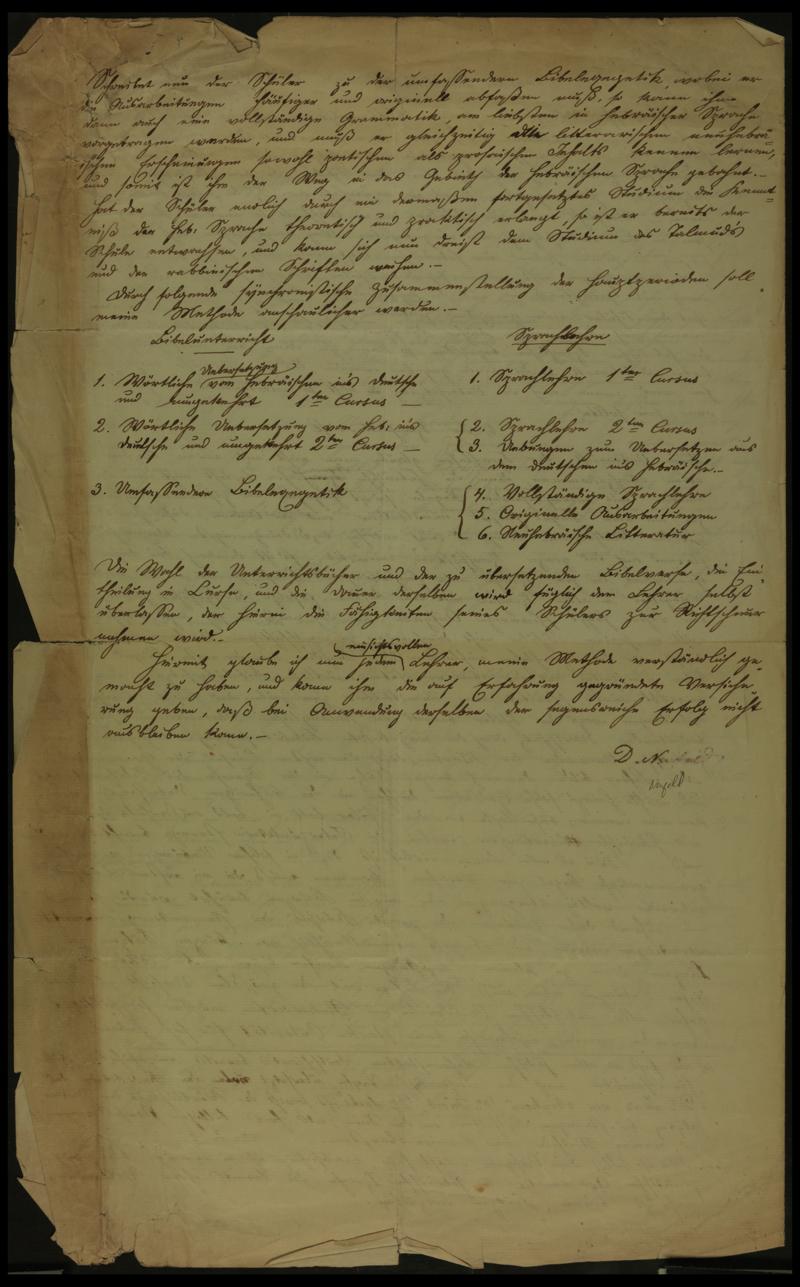 Schreitet nun der Schüler zu der umfassendern Bibelexegetik, wobei er
die Ausarbeitungen häufiger und originell abfaßen muß, so kann ihm
dann auch eine vollständige Grammatik, am liebsten in hebräischer Sprache
vorgetragen werden, und muß er gleichzeitig alle litterarischen neuhebrä-
ischen Erscheinungen sowohl poetischen als prosaischen Inhalts kennen lernen,
und somit ist ihm der Weg in das Gebieth der hebräischen Sprache gebahnt.-
Hat der Schüler endlich durch ein dermaßen fortgesetztes Studium die Kennt-
niß der heb: Sprache theoretisch und practisch erlangt, so ist er bereits der
Schule entwachsen, und kann sich nun dreist dem Studium des Talmud's
und der rabbinischen Schriften weihen.-
Durch folgende synchronistische Zusammenstellung der Hauptperioden soll
meine Methode anschaulicher werden.-
Bibelunterricht
Sprachlehre
1. Wörtliche Uebersetzung vom hebräischen in's deutsche
und umgekehrt 1ter Cursus —
1. Sprachlehre 1ter Cursus
2. Wörtliche Uebersetzung vom heb: in's
deutsche und umgekehrt 2ter Cursus —
2. Sprachlehre 2ter Cursus
3. Uebungen zum Uebersetzen aus
dem deutschen in's hebräische.-
3. Umfassendere Bibelexegetik
4. Vollständige Sprachlehre
5. Originelle Ausarbeitungen
6. Neuhebräische Litteratur
Die Wahl der Unterrichtsbücher und der zu übersetzenden Bibelverse, die Ein-
theilung in Curse, und die Dauer derselben wird füglich dem Lehrer selbst
überlassen, der hierin die Fähigkeiten seines Schülers zur Richtschnur
nehmen wird.-
Hiermit glaube ich nun jedem einsichtsvollen Lehrer, meine Methode verständlich ge-
macht zu haben, und kann ihm die auf Erfahrung gegründete Versiche-
rung geben, daß bei Anwendung derselben der segensreiche Erfolg nicht
ausbleiben kann.-
D. Neufeld